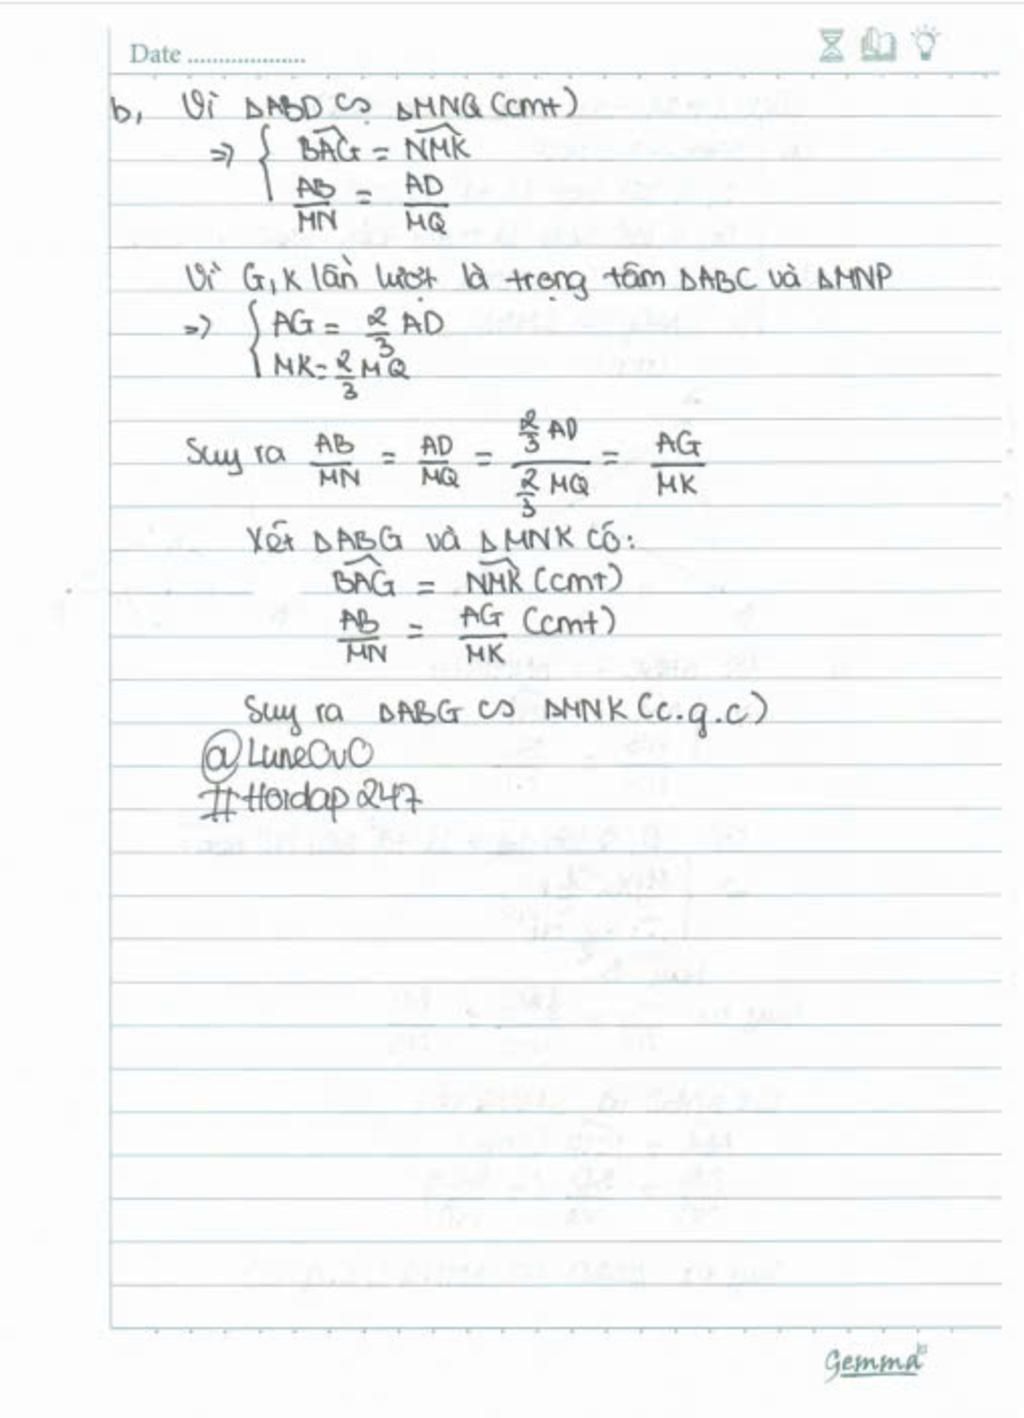 Date ....................
b, Vì ΔABD ∽ ΔMNQ (cmt)
=> { BAG = NMK
AB/MN = AD/MQ
Vì G, K lần lượt là trọng tâm ΔABC và ΔMNP
=> { AG = 2/3 AD
MK = 2/3 MQ
Suy ra AB/MN = AD/MQ = 2/3 AD / 2/3 MQ = AG/MK
Xét ΔABG và ΔMNK có:
BAG = NMK (cmt)
AB/MN = AG/MK (cmt)
Suy ra ΔABG ∽ ΔMNK (c.g.c)
@LuneOvO
#Hoidap247
Gemma